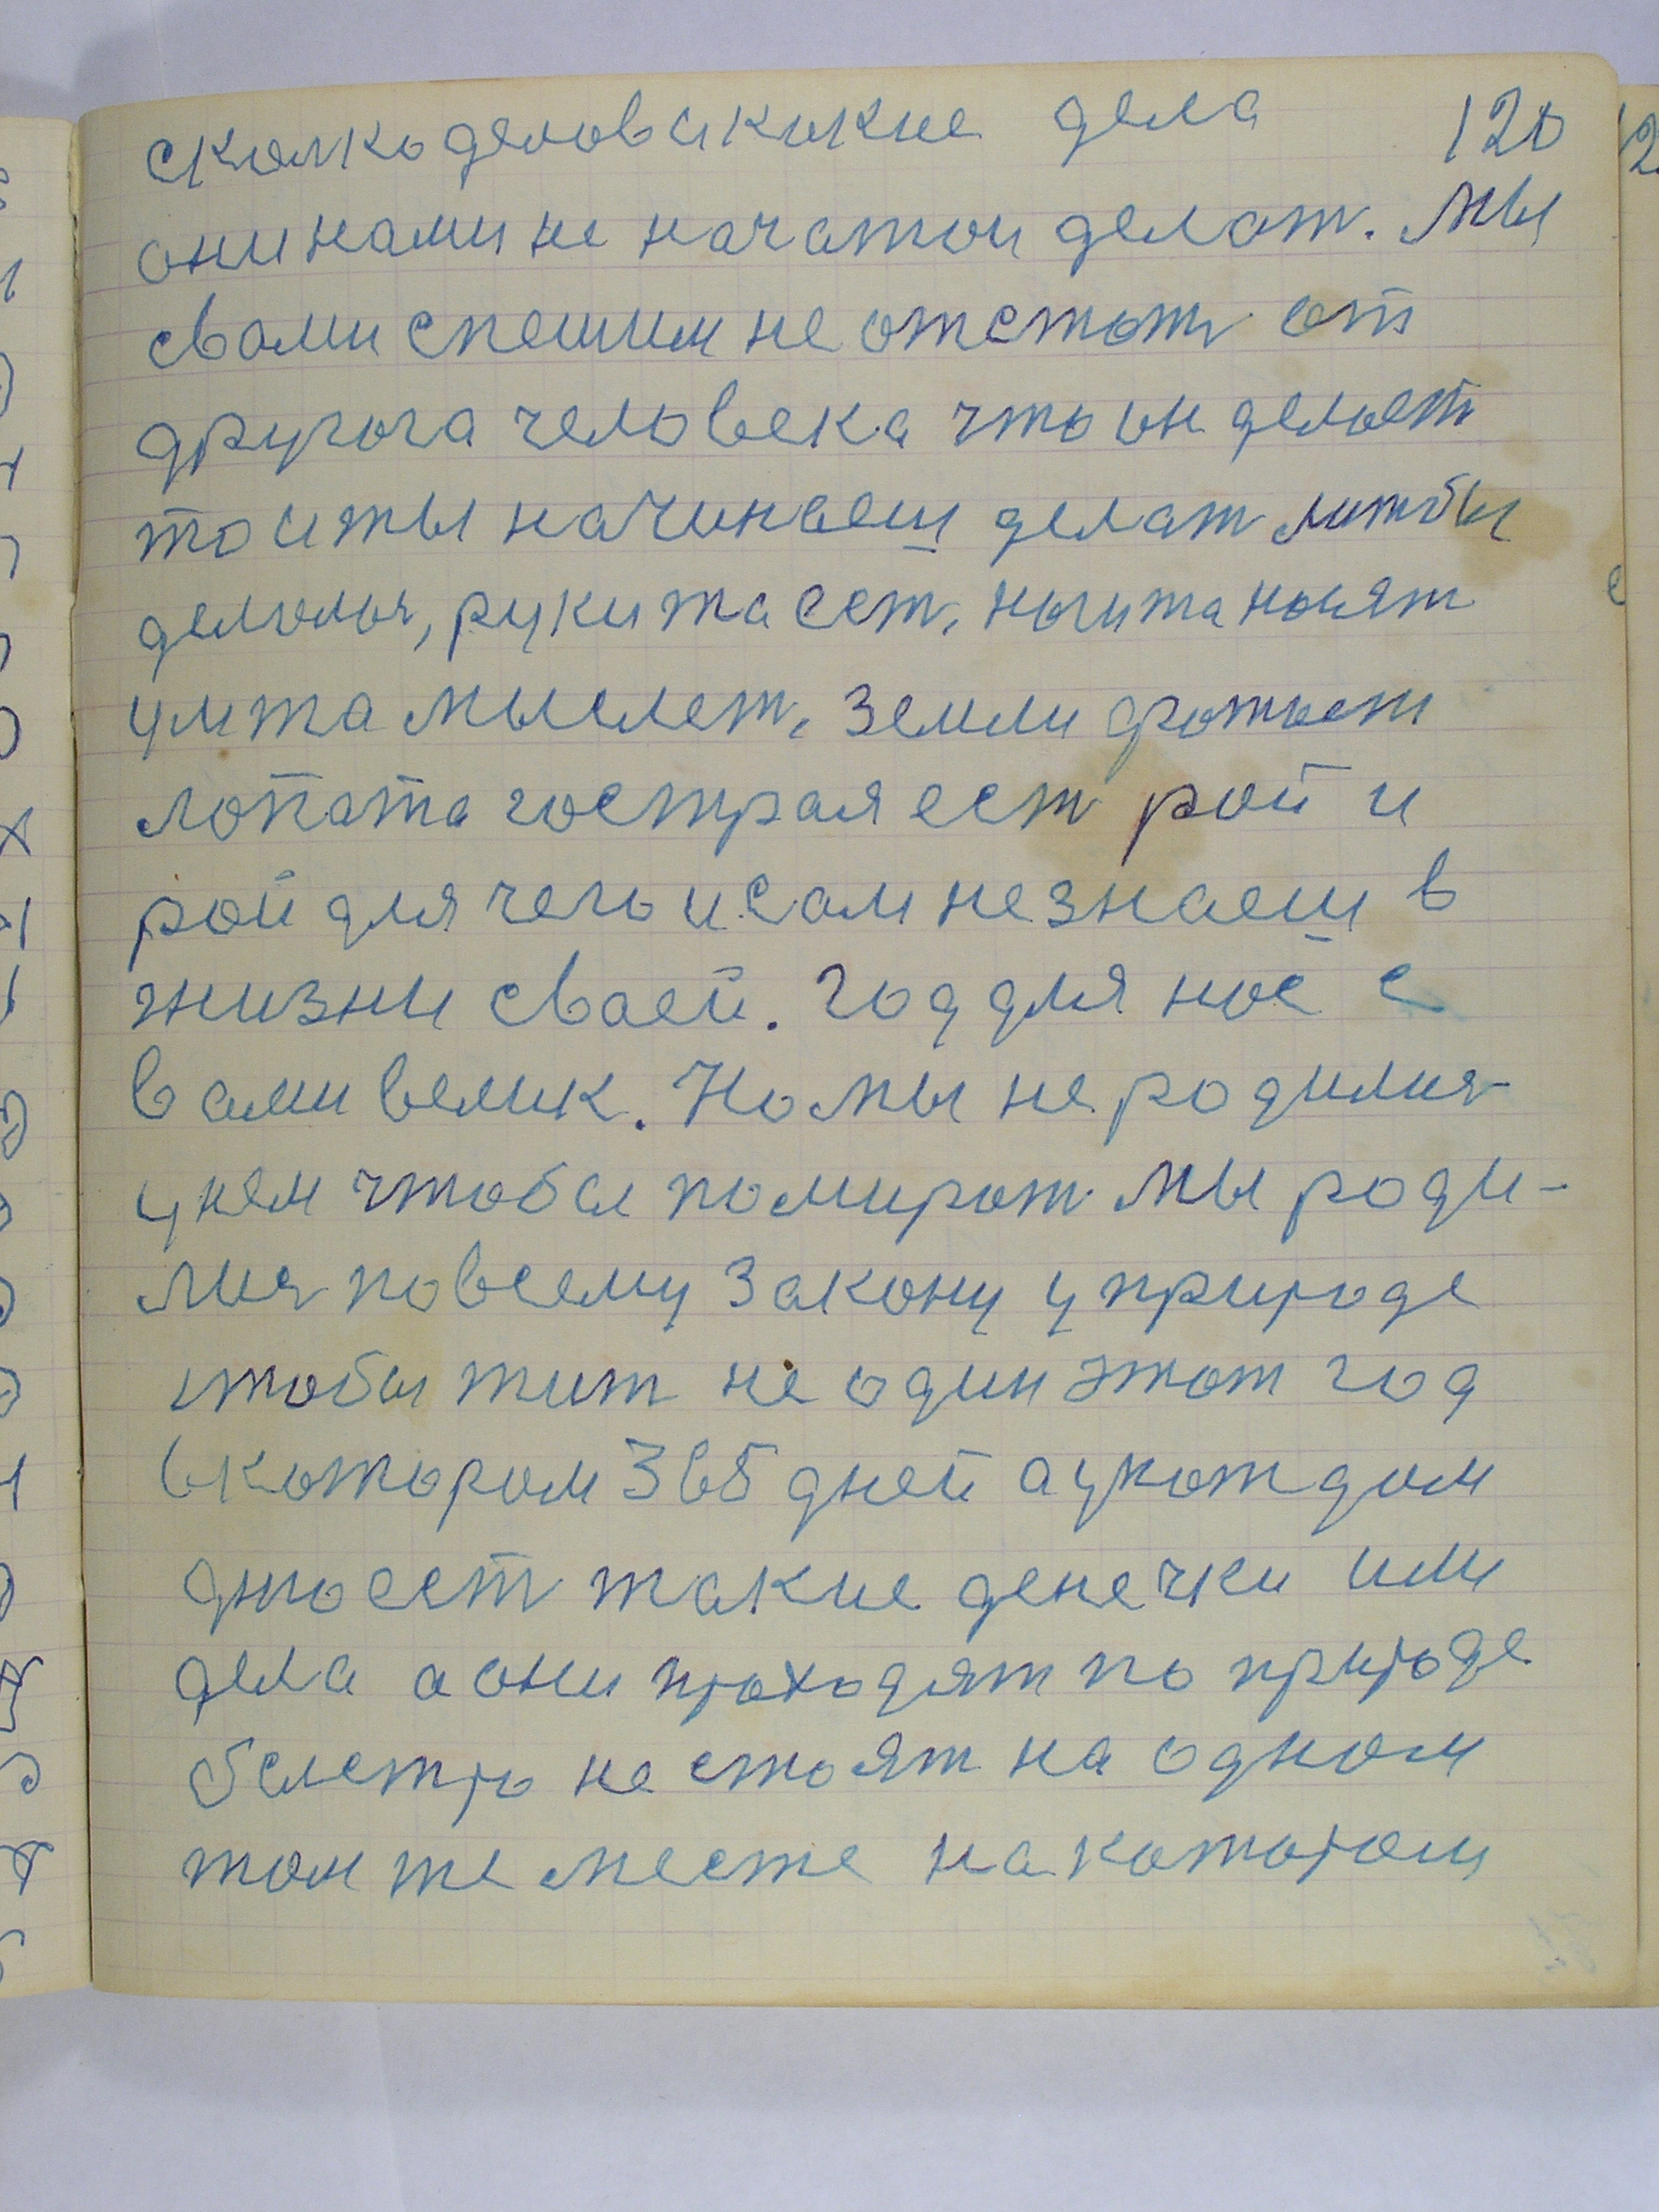 сколко делов и какие дела 120
они нами не начатои делат. Мы
свами спешим не отстат от
другога человека что он делает
то и ты начинаеш делат лижбы
делалы, руки жа ест, ноги жа носят
ум жа мыслет, земли фатает
лопата гострая ест рой и
рой для чего и сам незнаеш в
жизни сваей. Год для нас с
вами велик. Но мы не родилис
у нем чтобы помират мы роди-
лис по всему закону у природе
чтобы жит не один этот год
в котором 365 дней а у каждом
дню ест такие денечки или
дела а они проходят по природе
быстро не стоят на одном
том же месте на котором